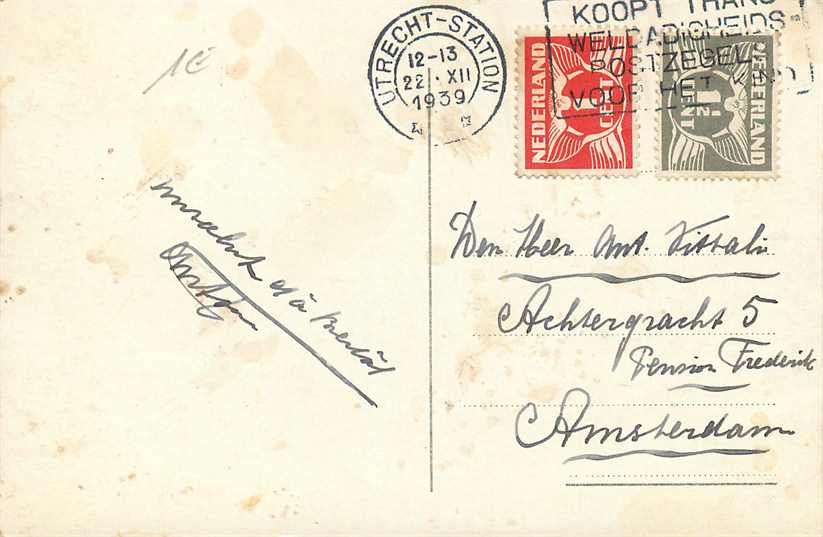 1E
UTRECHT-STATION
12-13
22 · XII
1939
KOOPT THANS
WELDADIGHEIDS-
POSTZEGEL
VOOR HET KIND
NEDERLAND
CENT
NEDERLAND
CENT
Den Heer Ant. Vittali
Achtergracht 5
Pension Frederik
Amsterdam